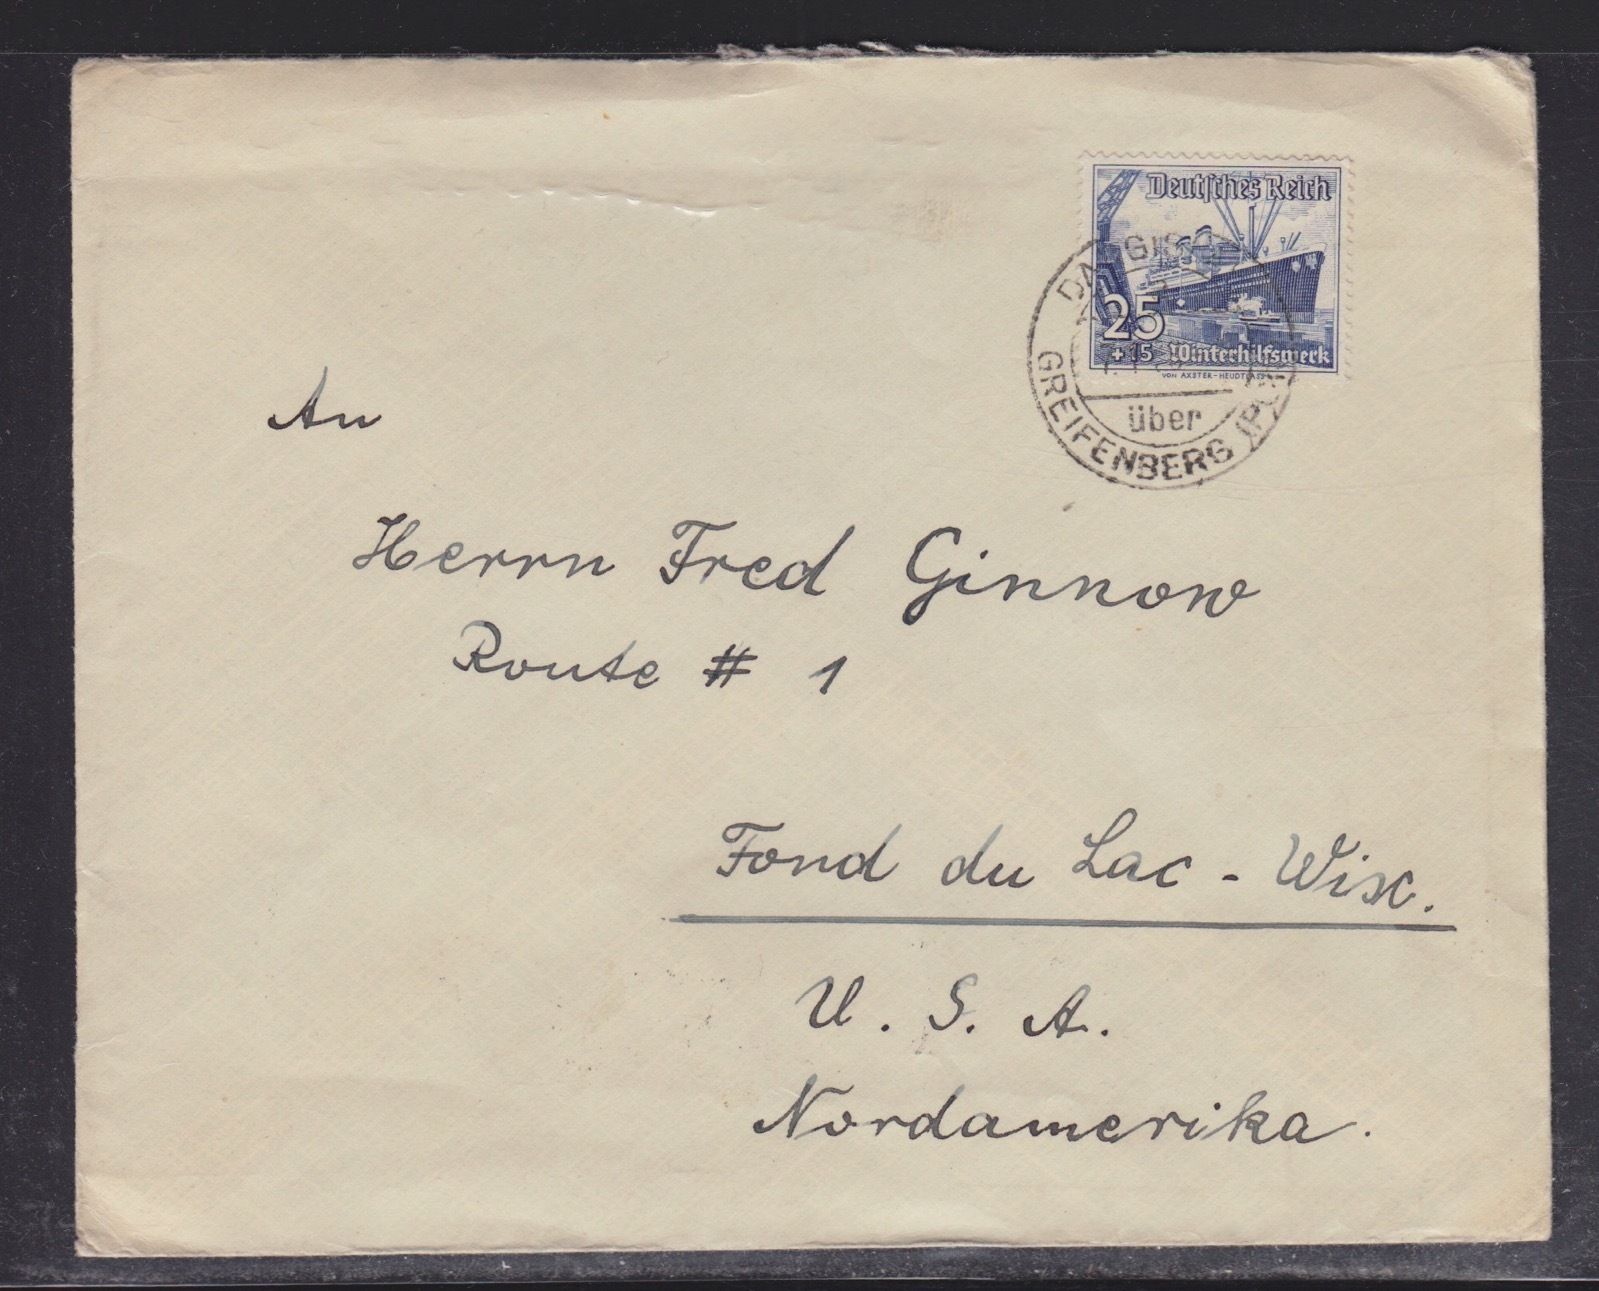 Deutsches Reich
25
+15 Winterhilfswerk
VON AXSTER-HEUDTLASS
über
GREIFENBERG
An
Herrn Fred Ginnow
Route # 1
Fond du Lac - Wisc.
U. S. A.
Nordamerika.